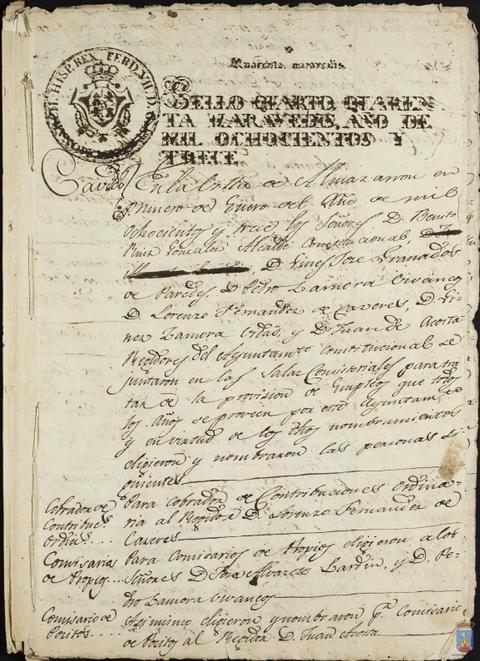 HISP. REX. FERD. VII. D.
Quarenta maravedis.
SELLO QUARTO, QUAREN
TA MARAVEDIS, AÑO DE
MIL OCHOCIENTOS Y
TRECE.
Cavdo En la Villa de Almazarron en
primero de Enero del Año de mil
ochocientos y trece los Señores D. Benito
Ruiz Gonzalez Alcalde Constitucional,
D. Gines Jose Granados
de Paredes D. Pedro Zamora Vivancos
D. Lorenzo Fernandez de Caceres, D. Gi
nes Zamora Vidal, y D. Juan de Acosta
Regidores del Ayuntamto constitucional se
juntaron en las Salas Consistoriales para tra
tar de la provision de Empleos que todos
los Años se proveen por este Ayuntamto
y en virtud de los dhos nombramientos
eligieron y nombraron las personas si
guientes
Cobrador de Para cobrador de Contribuciones ordina
Contribues ria al Regidor D. Lorenzo Fernandez de
Ordins.... Caceres
Comisarios Para Comisarios de Propios eligieron a los
de Propios... Señores D. Jose Alvarez Lardin, y D. Pe
dro Zamora Vivancos
Comisario de Asi mismo eligieron y nombraron pa Comisario
Positos.... de Positos al Regidor D. Juan Acosta